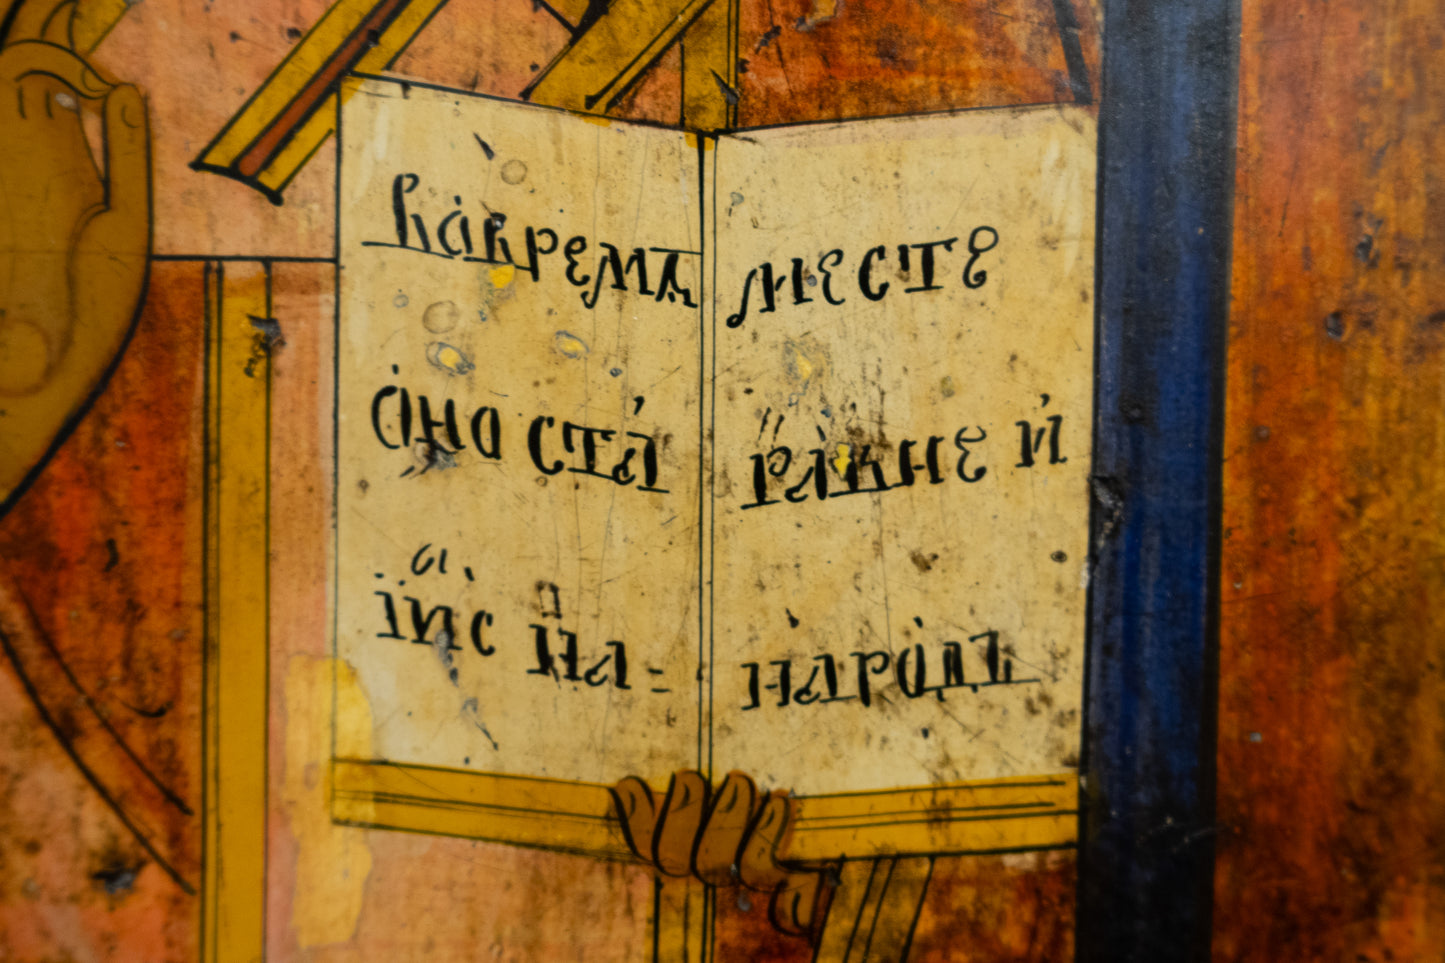 вовремѧ
оно ста
іис на
месте
равне и
народ